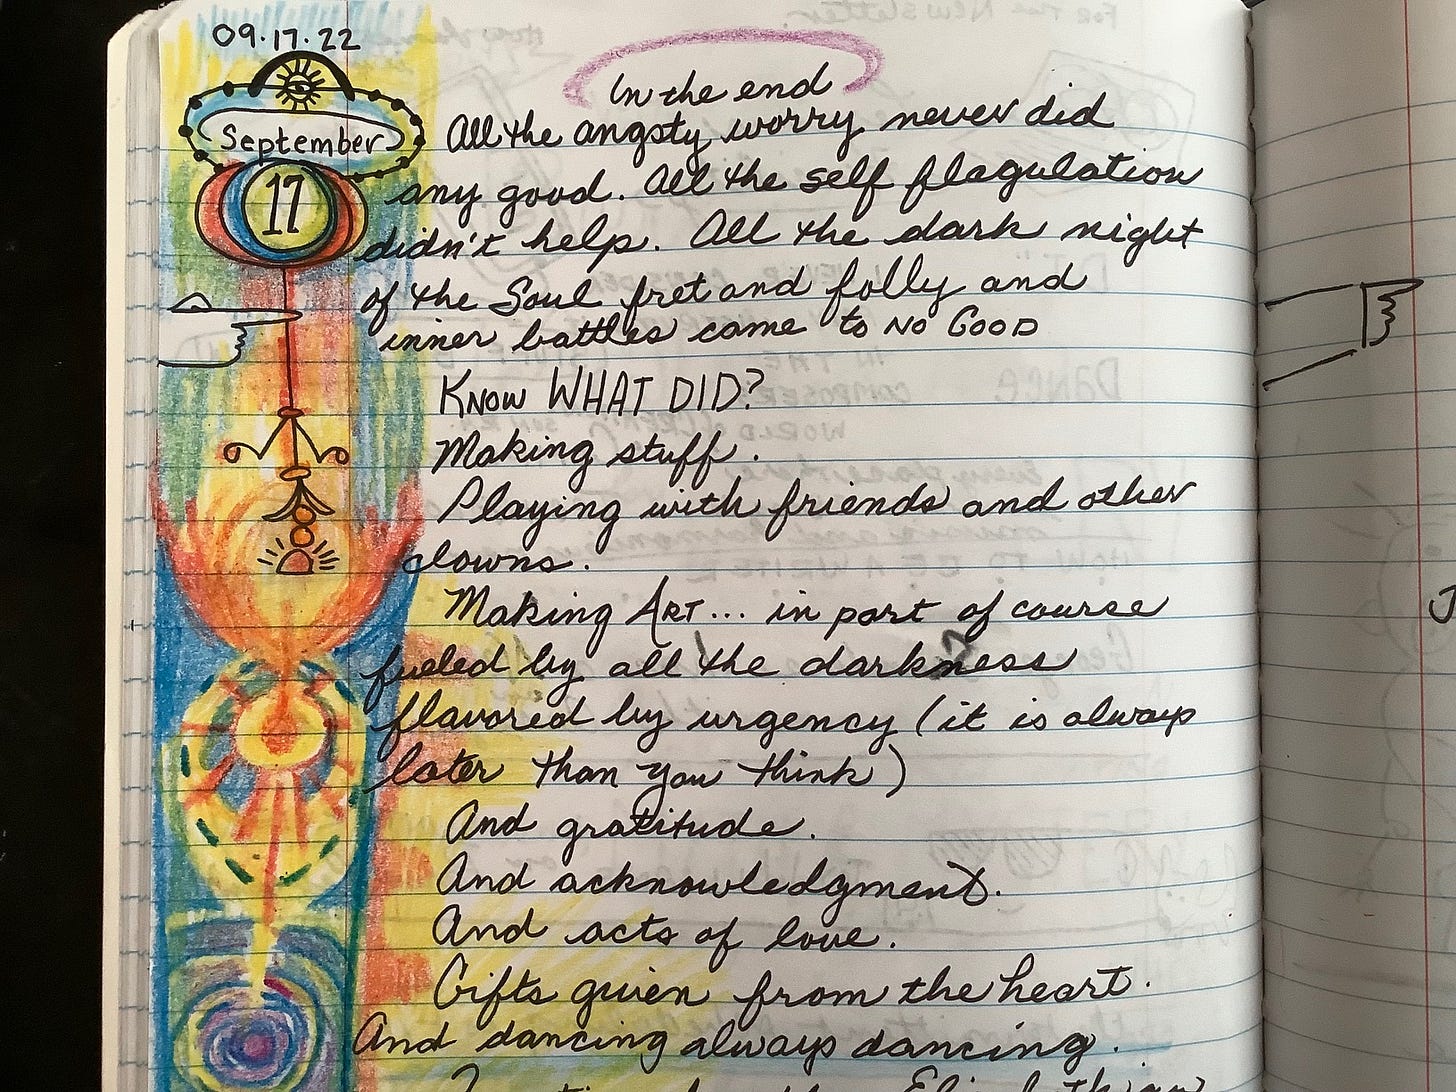 09.17.22
September
17
In the end
All the angsty worry never did
any good. All the self flagulation
didn't help. All the dark night
of the Soul fret and folly and
inner battles came to NO GOOD
KNOW WHAT DID?
Making stuff.
Playing with friends and other
clowns.
Making ART... in part of course
fueled by all the darkness
flavored by urgency (it is always
later than you think)
And gratitude.
And acknowledgment.
And acts of love.
Gifts given from the heart.
And dancing always dancing.